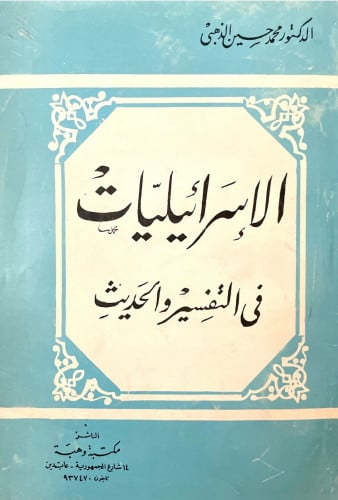 الدكتور محمد حسين الذهبى
الإسرائيليّات
فى التفسير والحديث
الناشر
مكتبة وهبة
١٤ شارع الجمهورية - عابدين
تليفون ٩٣٧٤٧٠